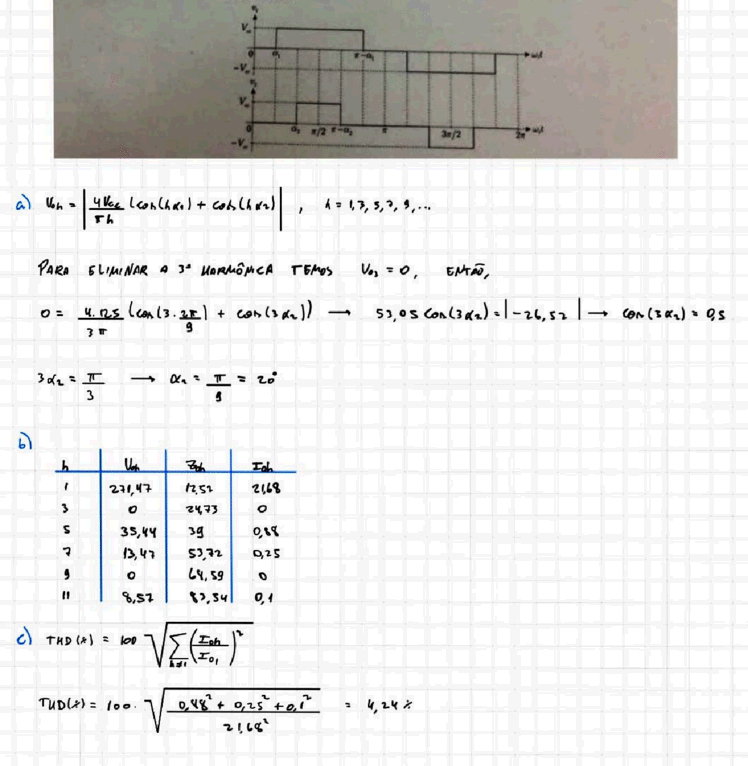 v₁
Vcc
0 α₁ π-α₁ ωt
-Vcc
v₂
Vcc
0 α₂ π/2 π-α₂ π 3π/2 2π ωt
-Vcc
a) Voh = | 4Vcc/πh (cos(hα₁) + cos(hα₂) | , h = 1,3,5,7,9,...
PARA ELIMINAR A 3ª HARMÔNICA TEMOS Vo3 = 0, ENTÃO,
0 = 4.125/3π (cos(3.2π/9) + cos(3α₂)) → 53,05 cos(3α₂) = |-26,52| → cos(3α₂) = 0,5
3α₂ = π/3 → α₂ = π/9 = 20°
b)
h Voh Zoh Ioh
1 271,47 12,52 21,68
3 0 24,73 0
5 35,44 39 0,88
7 13,47 53,72 0,25
9 0 64,59 0
11 8,57 83,54 0,1
c) THD(%) = 100 √(∑h≠1 (Ioh/Io1)²)
THD(%) = 100. √((0,88² + 0,25² + 0,1²)/21,68²) = 4,24 %